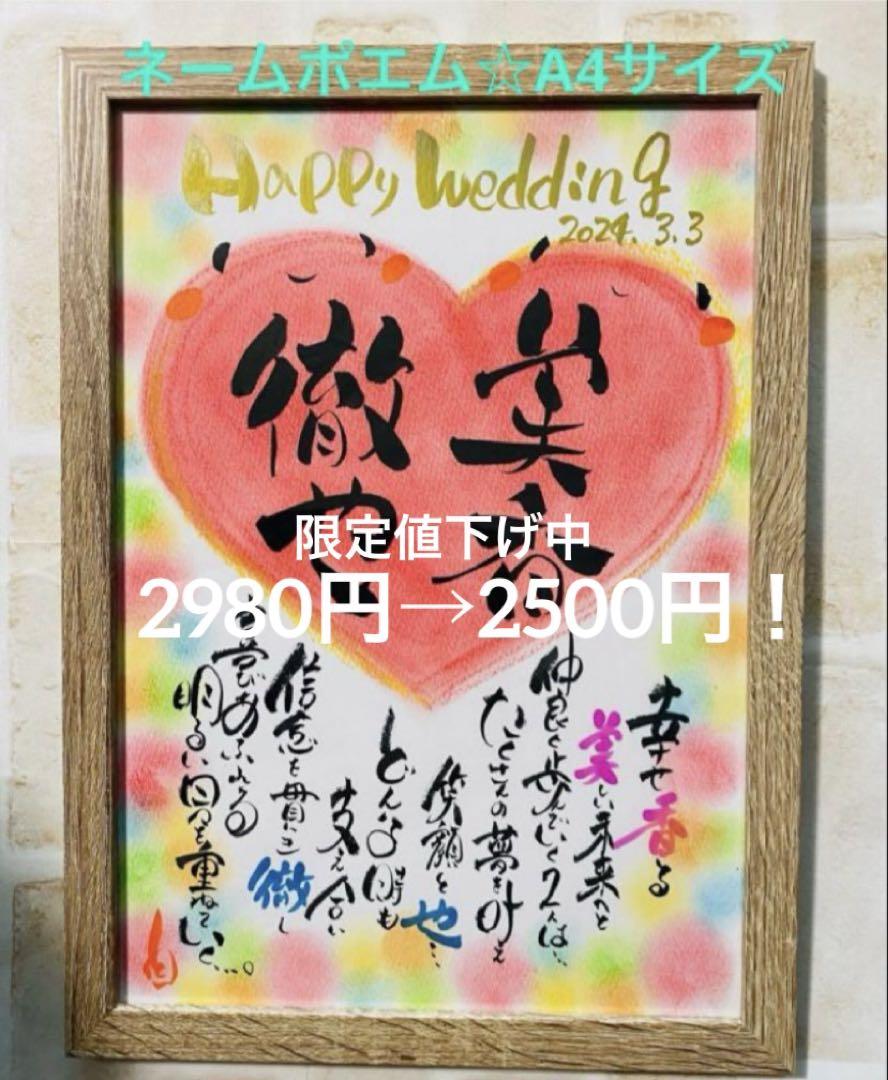 ネームポエム☆A4サイズ
Happy Wedding
2024.3.3
美香
徹也
限定値下げ中
2980円→2500円！
幸せ香る
美しい未来へと
仲良く歩んでいく2人は…
たくさんの夢を叶え
笑顔と也…
どんな時も
支え合い
信念を貫こ徹し
喜びあふれる
明るい日々を重ねていく…。